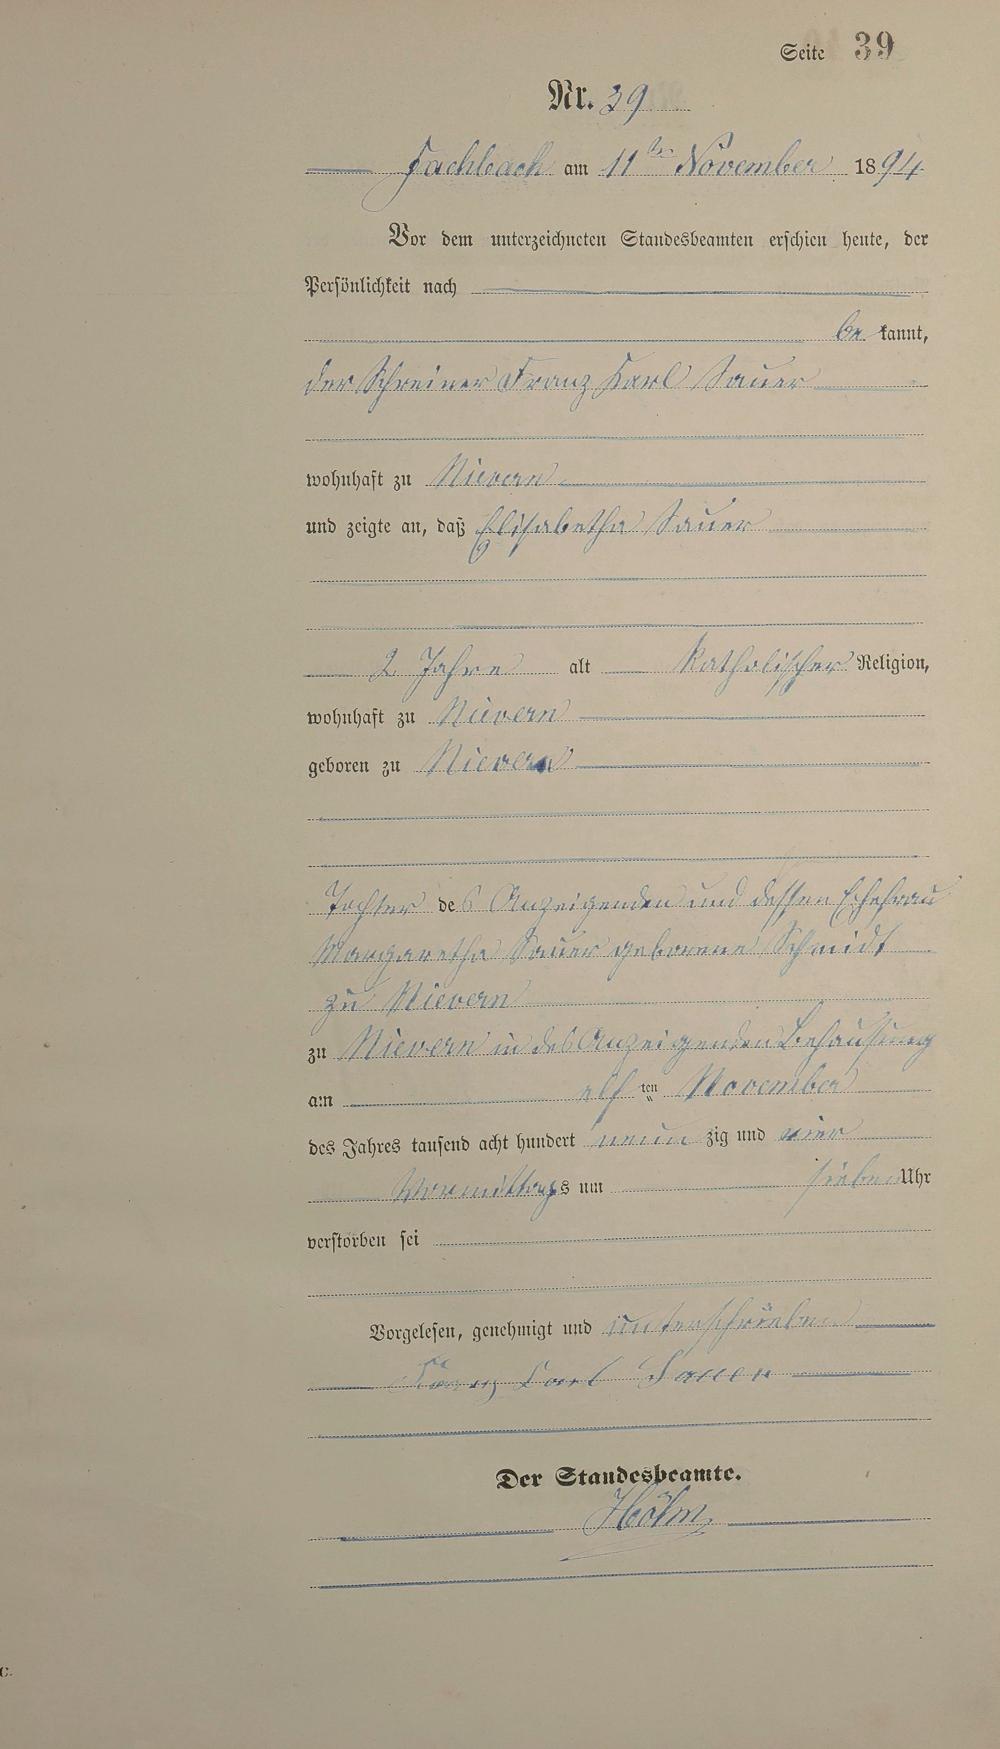 Seite 39
Nr. 39
Fachbach am 11ten November 1894
Vor dem unterzeichneten Standesbeamten erschien heute, der
Persönlichkeit nach
be kannt,
der Schreiner Franz Karl Sauer
wohnhaft zu Nievern
und zeigte an, daß Elisabetha Sauer
2 Jahre alt katholischer Religion,
wohnhaft zu Nievern
geboren zu Nievern
Tochter des Anzeigenden und dessen Ehefrau
Margaretha Sauer geborene Schmidt
zu Nievern
zu Nievern in des Anzeigenden Behausung
am elf ten November
des Jahres tausend acht hundert neun zig und vier
Vormittags um sieben Uhr
verstorben sei
Vorgelesen, genehmigt und unterschrieben
Franz Carl Sauer
Der Standesbeamte.
C.